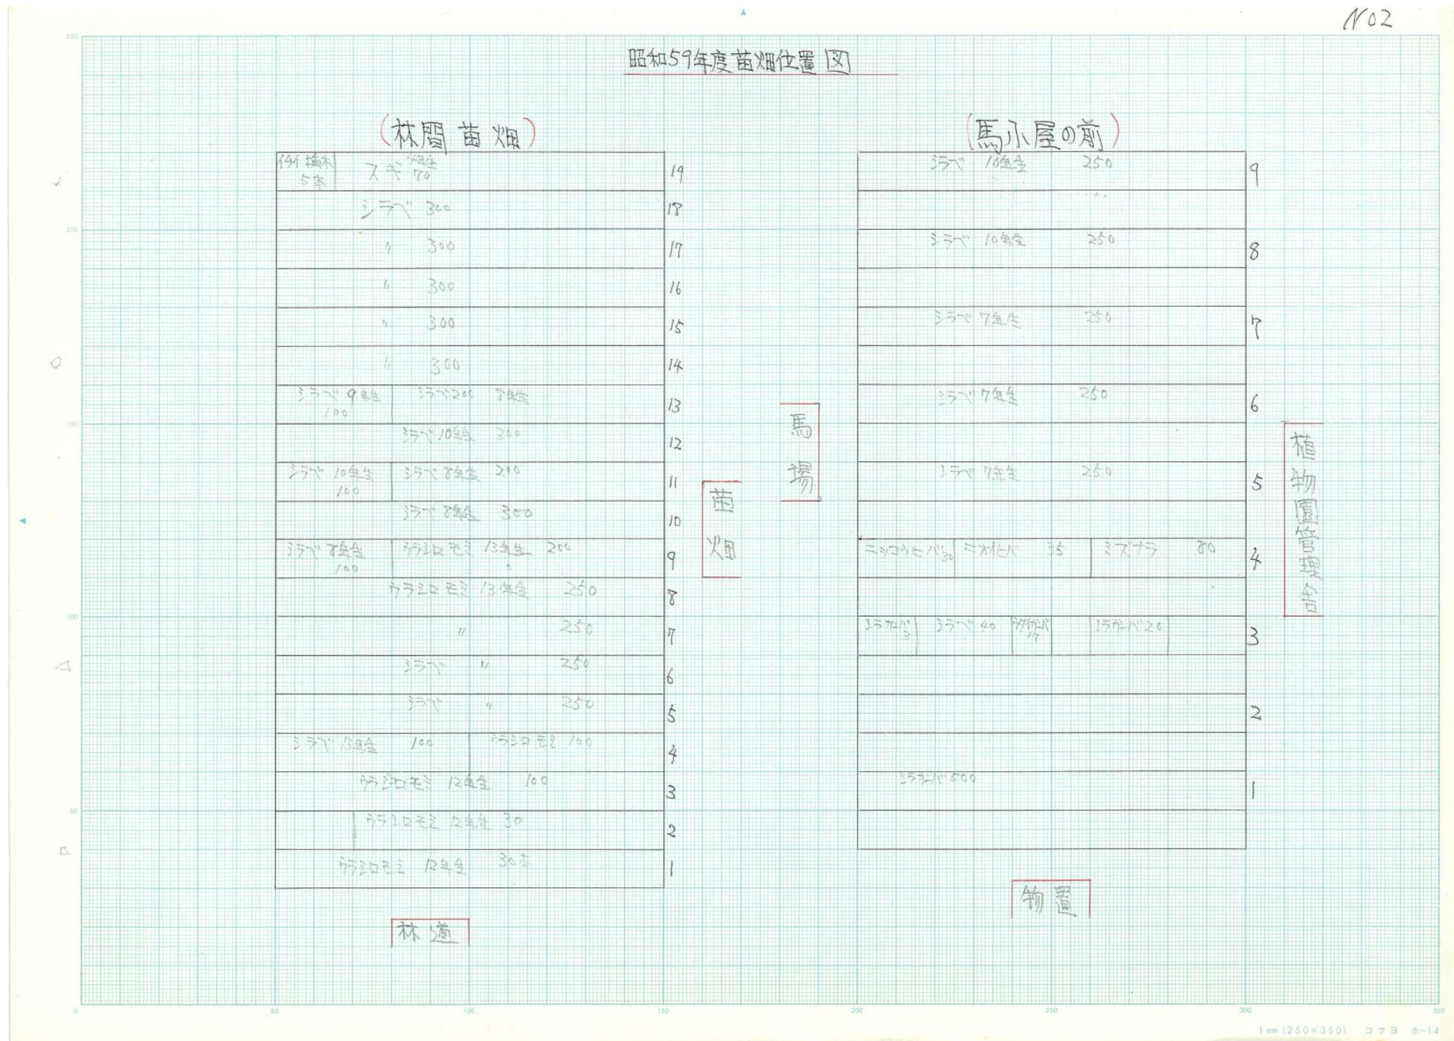 NO2
昭和59年度苗畑位置図
(林間苗畑)
スギ 70 19
シラベ 300 18
〃 300 17
〃 300 16
〃 300 15
〃 300 14
シラベ 9年生 100 シラベ200 8年生 13
シラベ10年生 300 12
シラベ 10年生 100 シラベ8年生 200 11
シラベ 8年生 300 10
シラベ 8年生 100 ウラジロモミ 13年生 200 9
ウラジロモミ 13年生 250 8
〃 250 7
シラベ 〃 250 6
シラベ 〃 250 5
シラベ 13年生 100 ウラジロモミ 100 4
ウラジロモミ 12年生 100 3
ウラジロモミ 12年生 30 2
ウラジロモミ 12年生 30本 1
林道
苗畑
馬場
(馬小屋の前)
シラベ 10年生 250 9
シラベ 10年生 250 8
シラベ 7年生 250 7
シラベ 7年生 250 6
シラベ 7年生 250 5
ニッコウヒバ30 ニオイヒバ 35 ミズナラ 80 4
シラカンバ 3 シラベ 40 17 シラカンバ20 3
2
シラカンバ 500 1
物置
植物園管理舎
250
200
150
100
50
0 50 100 150 200 250 300 350
1mm (250×350) コクヨ ホ-14